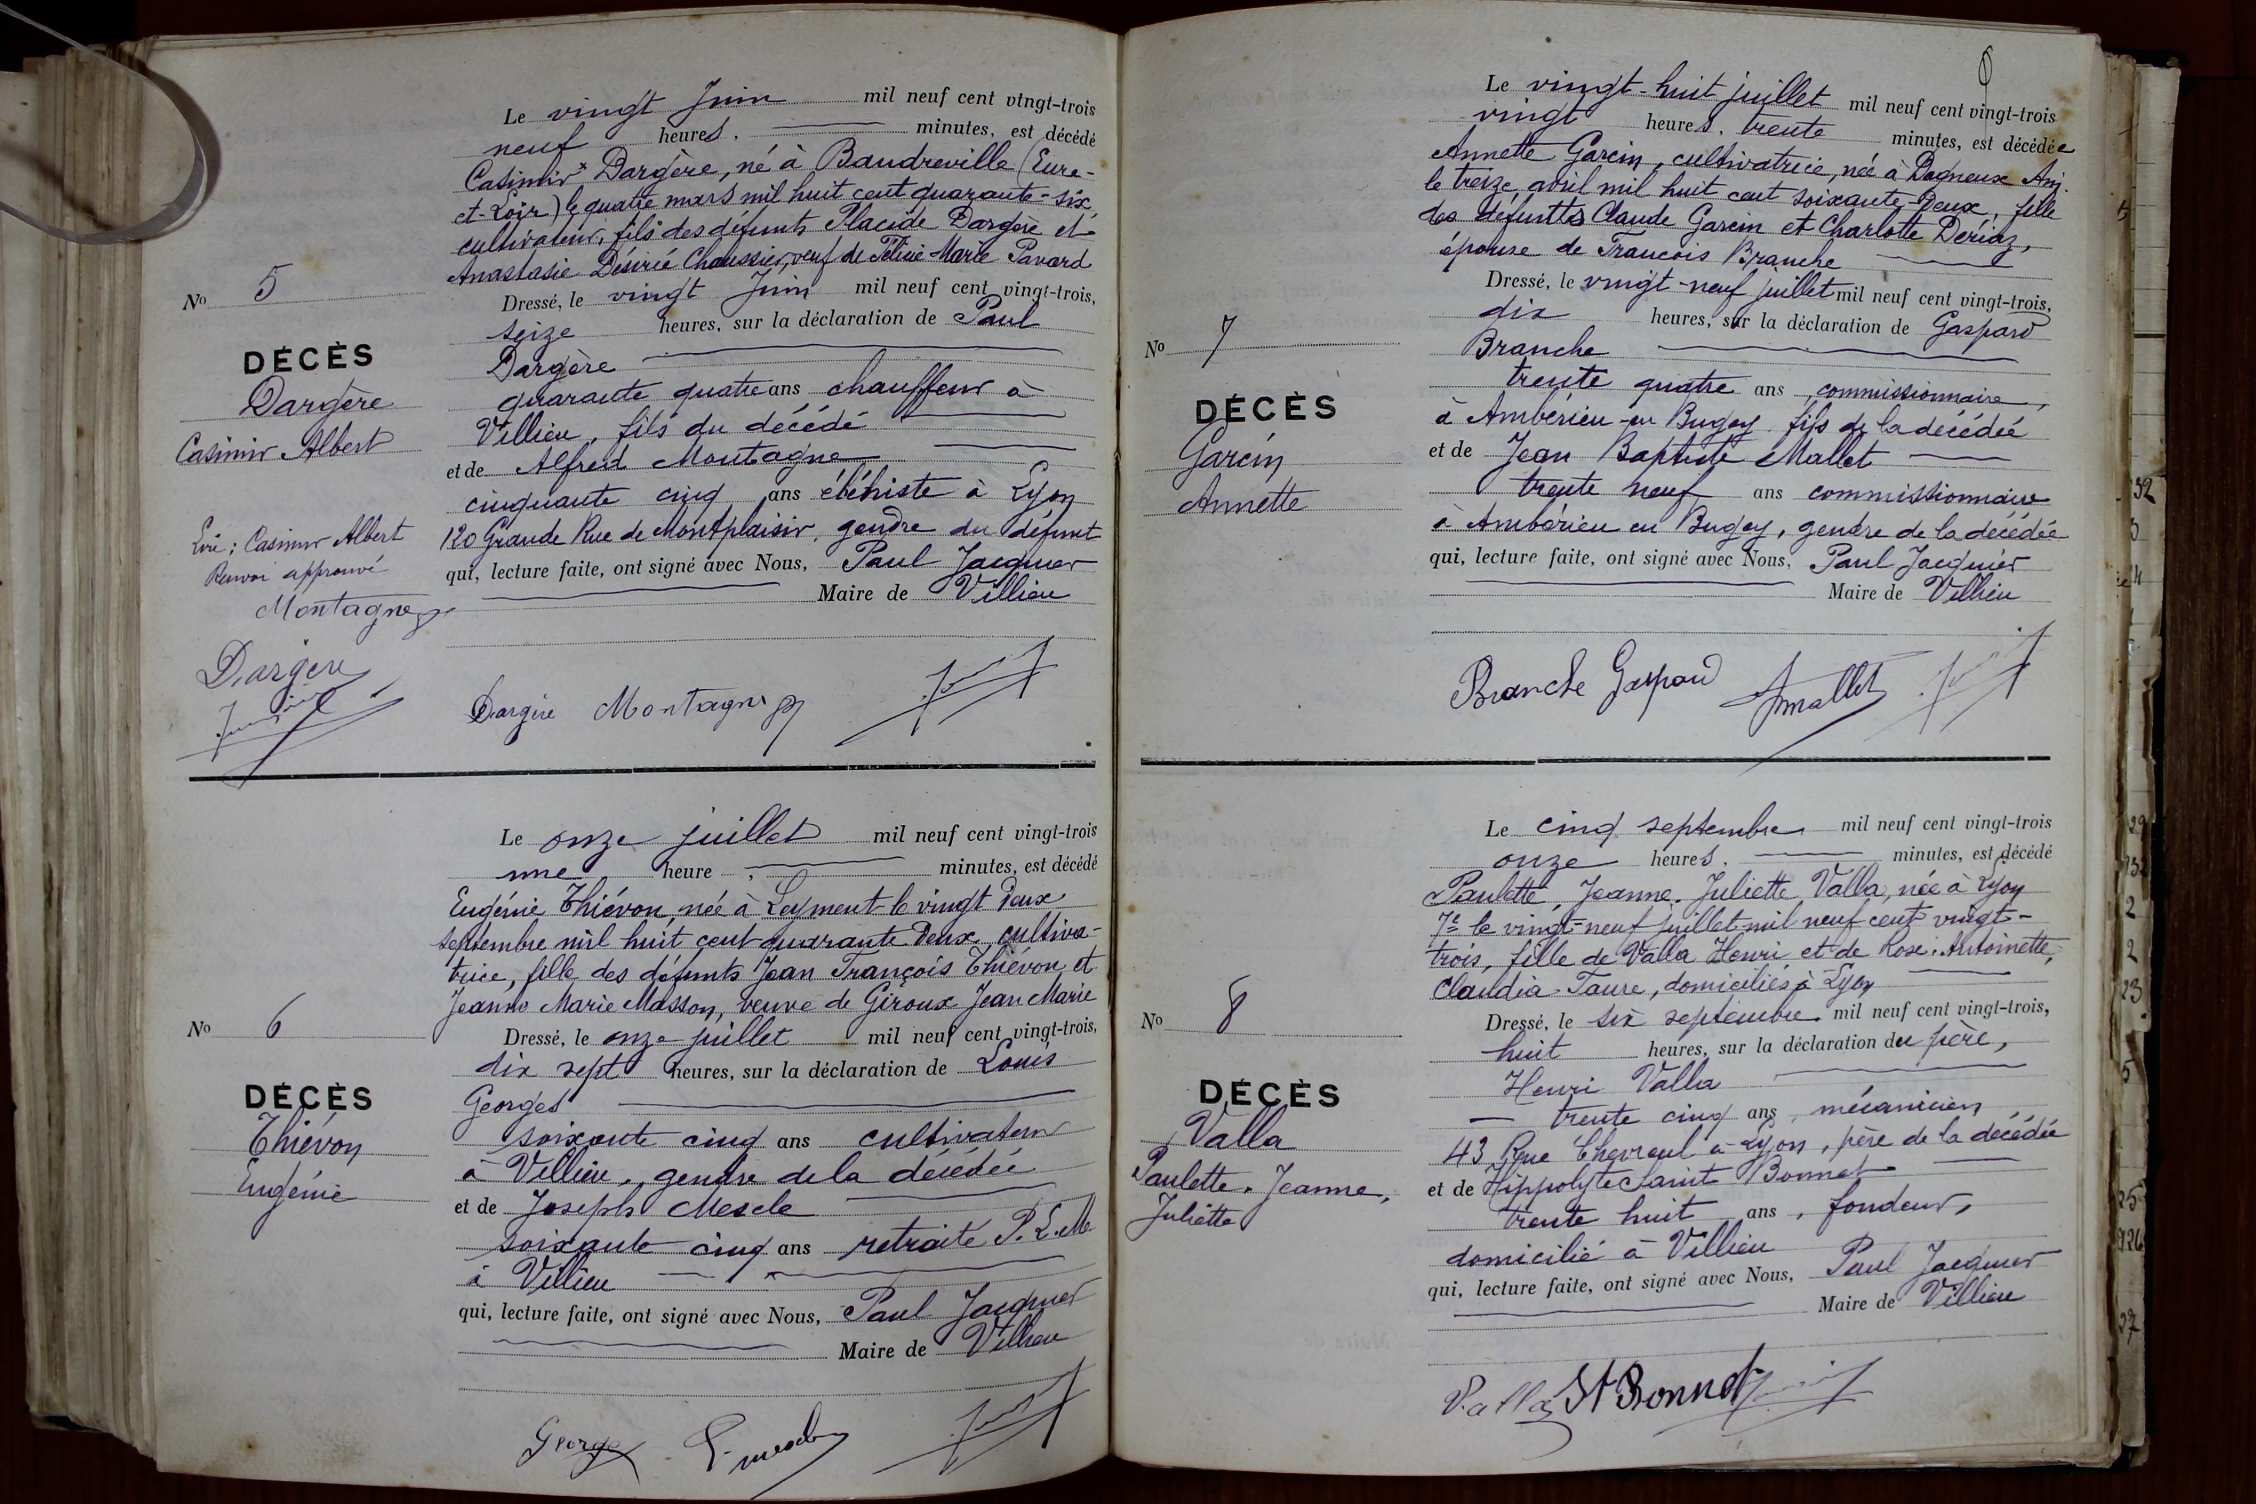 Le vingt Juin mil neuf cent vingt-trois
neuf heures. minutes, est décédé
Casimir* Dargère, né à Baudreville (Eure-
et-Loir) le quatre mars mil huit cent quarante-six,
cultivateur, fils des défunts Placide Dargère et
Anastasie Désirée Chaussier, veuf de Félicie-Marie Pavard
Dressé, le vingt Juin mil neuf cent vingt-trois,
seize heures, sur la déclaration de Paul
Dargère
quarante quatre ans chauffeur à
Villieu, fils du décédé
et de Alfred Montagne
cinquante cinq ans ébéniste à Lyon
120 Grande Rue de Montplaisir, gendre du défunt
qui, lecture faite, ont signé avec Nous, Paul Jacquier
Maire de Villieu
Dargère Montagne
No 5
DÉCÈS
Dargère
Casimir Albert
Lire: Casimir Albert
Renvoi approuvé
Montagne
Dargère
Le onze juillet mil neuf cent vingt-trois
une heure minutes, est décédé
Eugénie Thiévon née à Leyment le vingt deux
septembre mil huit cent quarante deux cultiva-
trice, fille des défunts Jean François Thiévon et
Jeanne Marie Masson, veuve de Giroux Jean Marie
Dressé, le onze juillet mil neuf cent vingt-trois,
dix sept heures, sur la déclaration de Louis
Georges
soixante cinq ans cultivateur
à Villieu, gendre de la décédée
et de Joseph Mescle
soixante cinq ans retraité P.L.M
à Villieu
qui, lecture faite, ont signé avec Nous, Paul Jacquier
Maire de Villieu
George
No 6
DÉCÈS
Thiévon
Eugénie
Le vingt-huit juillet mil neuf cent vingt-trois
vingt heures. trente minutes, est décédée
Annette Garcin, cultivatrice, née à Dagneux Ain
le treize avril mil huit cent soixante-deux, fille
des défunts Claude Garcin et Charlotte Dériaz,
épouse de Francois Branche
Dressé, le vingt-neuf juillet mil neuf cent vingt-trois,
dix heures, sur la déclaration de Gaspard
Branche
trente quatre ans, commissionnaire,
à Ambérieu-en Bugey fils de la décédée
et de Jean Baptiste Mallet
trente neuf ans commissionnaire
à Ambérieu en Bugey, gendre de la décédée
qui, lecture faite, ont signé avec Nous, Paul Jacquier
Maire de Villieu
Branche Gaspard Jmallet
No 7
DÉCÈS
Garcin
Annette
Le cinq septembre mil neuf cent vingt-trois
onze heures. minutes, est décédé
Paulette, Jeanne, Juliette Valla, née à Lyon
7e le vingt-neuf juillet mil neuf cent vingt-
trois, fille de Valla Henri et de Rose, Antoinette,
Claudia Faure, domiciliés à Lyon
Dressé, le six septembre mil neuf cent vingt-trois,
huit heures, sur la déclaration du père,
Henri Valla
trente cinq ans, mécanicien
43 Rue Chevreul à Lyon, père de la décédée
et de Hippolyte Saint Bonnet
trente huit ans, fondeur,
domicilié à Villieu
qui, lecture faite, ont signé avec Nous, Paul Jacquier
Maire de Villieu
Valla St Bonnet
No 8
DÉCÈS
Valla
Paulette, Jeanne,
Juliette